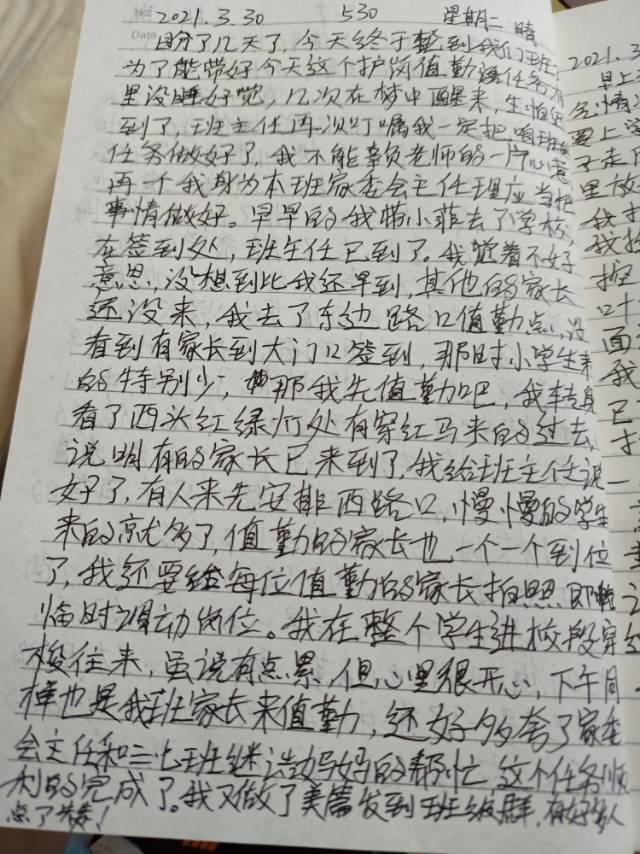 2021.3.30 530 星期二 晴
盼了几天了,今天终于轮到我们班,
为了能带好今天这个护岗值勤任务,
里没睡好觉,几次在梦中醒来,生怕
到了,班主任再次叮嘱我一定把咱班
任务做好了,我不能辜负老师的一片心意
再一个我身为本班家委会主任理应当把
事情做好。早早的我带小菲去了学校,
在签到处,班主任已到了。我觉着不好
意思,没想到比我还早到,其他的家长
还没来,我去了东边路口值勤点,没
看到有家长到大门口签到,那时小学生来
的特别少,那我先值勤吧,我转身
看了西头红绿灯处有穿红马来的过去,
说明有的家长已来到了,我给班主任说
好了,有人来先安排西路口,慢慢的学生
来的就多了,值勤的家长也一个一个到位
了,我还要给每位值勤的家长拍照,即
临时调动岗位。我在整个学生进校段穿
梭往来,虽说有点累,但心里很开心,下午同
样也是我班家长来值勤,还好多夸了家委
会主任和三七班继浩妈妈的帮忙 这个任务顺
利的完成了。我又做了美篇发到班级群,有好多人
点了赞!
2021.3
早上
要上学
子走
里放
我
我
口
面
我
已